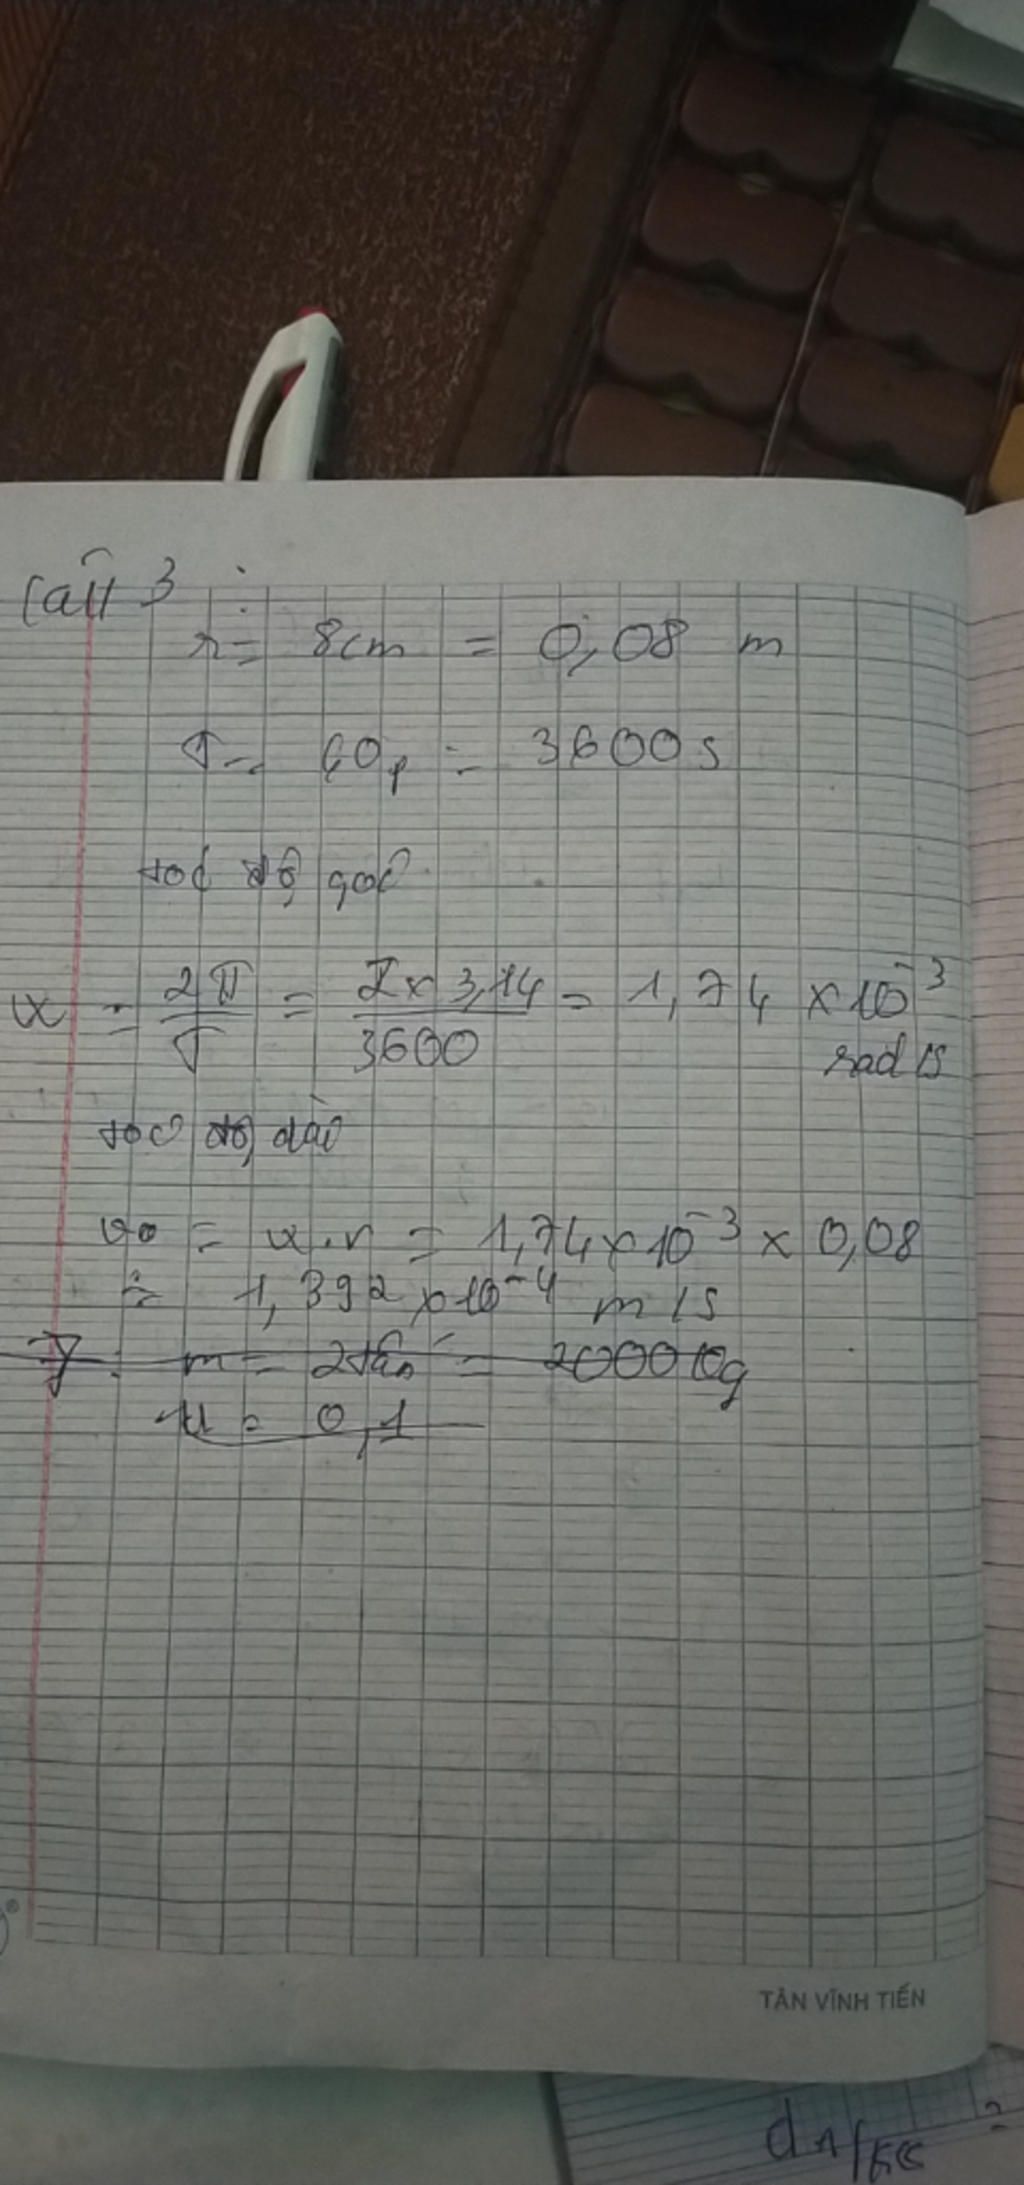 Câu 3 :
r = 8cm = 0,08 m
T = 60p = 3600s
tốc độ góc
ω = 2π/T = 2 x 3,14/3600 = 1,74 x 10^-3 rad/s
tốc độ dài
= ω.r = 1,74 x 10^-3 x 0,08
= 1,392 x 10^-4 m/s
m = 2tấn = 2000
μ = 0,1
TÂN VĨNH TIẾN